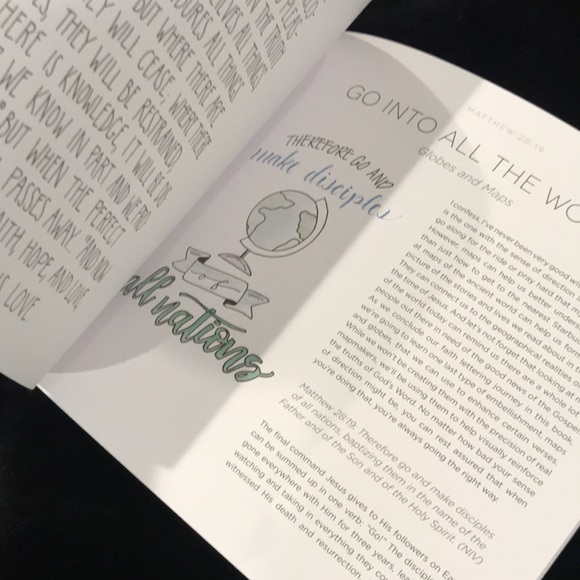 LY WILL CEASE, WHERE
THEY WILL BE RESTRAINED
HERE IS KNOWLEDGE, IT WILL BE
WE KNOW IN PART AND WE
BUT WHEN THE PERFECT
PASSES AWAY. AND
FAITH, HOPE, AND LOVE
IS LOVE.
BUT WHERE THERE ARE
ALL THINGS
THEREFORE GO AND
make disciples
of
all nations
MATTHEW 28:19
GO INTO ALL THE WO
Globes and Maps
I confess, I've never been very good wi
is the one with the sense of direction
go along for the ride or pray hard that
However, maps can help us better unders
than just how to get to the nearest Starbu
at maps of the ancient world can help us for
picture of the stories and lives we read about in t
They can connect us to the geographical realities o
the time of Jesus. And let's not forget that looking at
of the world today can remind us there are a whole lot
people out there in need of the good news of the Gospel
As we conclude our faith lettering journey in this book,
we're going to learn one last type of embellishment, maps
and globes, that we can use to enhance certain verses.
While we won't be creating them with the precision of real
mapmakers, we'll be using them to help visually reinforce
the truths of God's Word. No matter how bad your sense
of direction might be, you can rest assured that when
you're doing that, you're always going the right way.
Matthew 28:19: Therefore go and make disciples
of all nations, baptizing them in the name of the
Father and of the Son and of the Holy Spirit. (NIV)
The final command Jesus gives to His followers on Ea
can be summed up in one verb: "Go!" The discipl
gone everywhere with Him for three years, lea
watching and taking in everything they co
witnessed His death and resurrection.